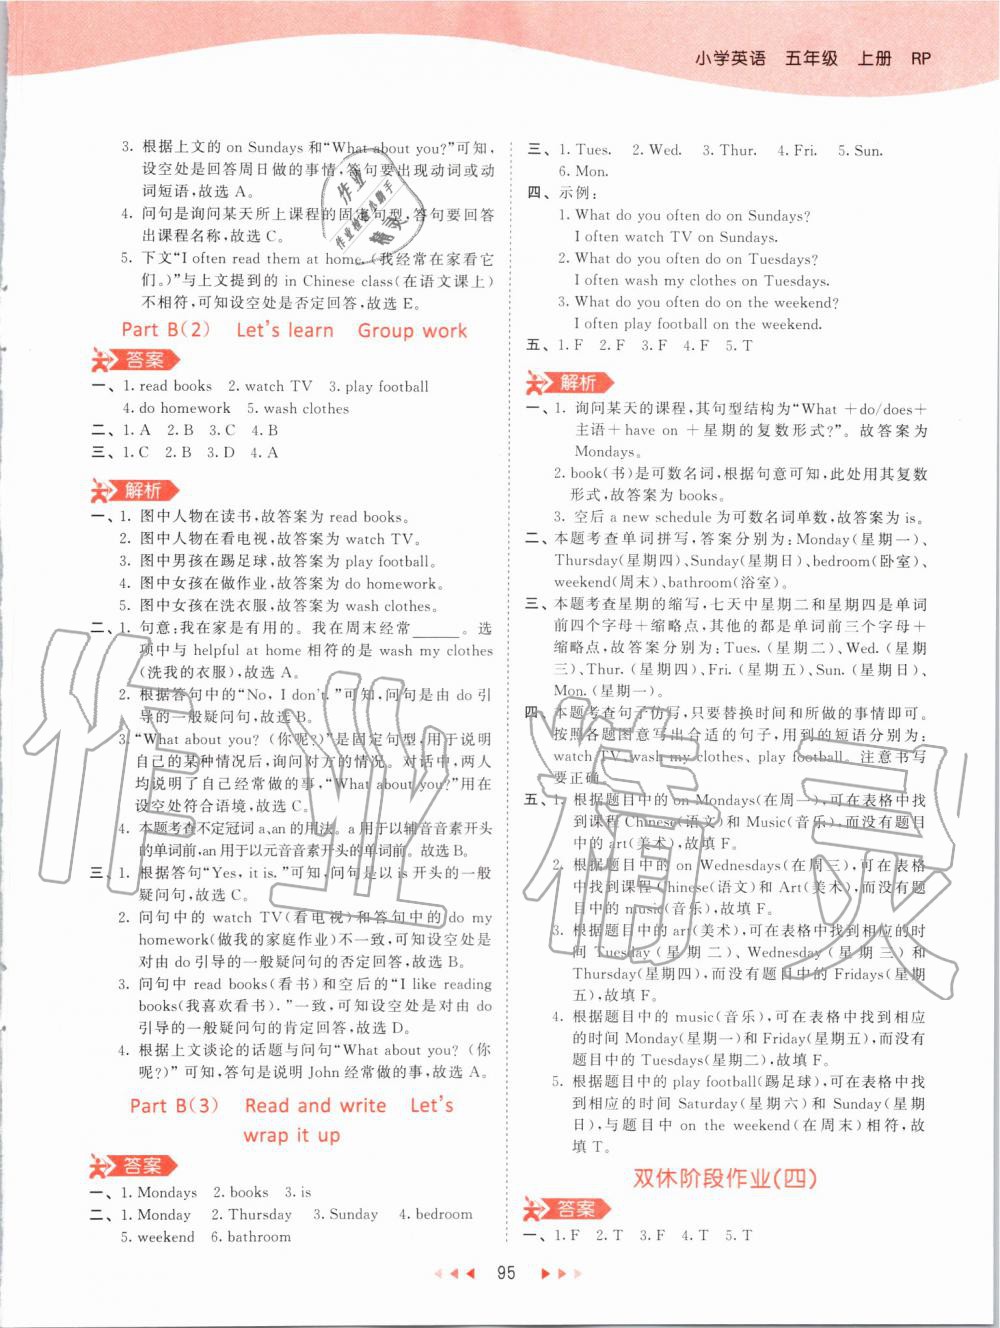 小学英语 五年级 上册 RP
3. 根据上文的 on Sundays 和“What about you?”可知,
设空处是回答周日做的事情,答句要出现动词或动
词短语,故选 A。
4. 问句是询问某天所上课程的固定句型,答句要回答
出课程名称,故选 C。
5. 下文“I often read them at home.(我经常在家看它
们。)”与上文提到的 in Chinese class(在语文课上)
不相符,可知设空处是否定回答,故选 E。
Part B(2) Let's learn Group work
答案
一、1. read books 2. watch TV 3. play football
4. do homework 5. wash clothes
二、1. A 2. B 3. C 4. B
三、1. C 2. B 3. D 4. A
解析
一、1. 图中人物在读书,故答案为 read books。
2. 图中人物在看电视,故答案为 watch TV。
3. 图中男孩在踢足球,故答案为 play football。
4. 图中女孩在做作业,故答案为 do homework。
5. 图中女孩在洗衣服,故答案为 wash clothes。
二、1. 句意:我在家是有用的。我在周末经常______。选
项中与 helpful at home 相符的是 wash my clothes
(洗我的衣服),故选 A。
2. 根据答句中的“No, I don't.”可知,问句是由 do 引
导的一般疑问句,故选 B。
3. “What about you?(你呢?)”是固定句型,用于说明
自己的某种情况后,询问对方的情况。对话中,两人
均说明了自己经常做的事,“What about you?”用在
设空处符合语境,故选 C。
4. 本题考查不定冠词 a、an 的用法。a 用于以辅音音素开头
的单词前,an 用于以元音音素开头的单词前。故选 B。
三、1. 根据答句“Yes, it is.”可知,问句是以 is 开头的一般
疑问句,故选 C。
2. 问句中的 watch TV(看电视)和答句中的 do my
homework(做我的家庭作业)不一致,可知设空处是
对由 do 引导的一般疑问句的否定回答,故选 B。
3. 问句中 read books(看书)和空后的“I like reading
books(我喜欢看书).”一致,可知设空处是对由 do
引导的一般疑问句的肯定回答,故选 D。
4. 根据上文谈论的话题与问句“What about you?(你
呢?)”可知,答句是说明 John 经常做的事,故选 A。
Part B(3) Read and write Let's
wrap it up
答案
一、1. Mondays 2. books 3. is
二、1. Monday 2. Thursday 3. Sunday 4. bedroom
5. weekend 6. bathroom
三、1. Tues. 2. Wed. 3. Thur. 4. Fri. 5. Sun.
6. Mon.
四、示例:
1. What do you often do on Sundays?
I often watch TV on Sundays.
2. What do you often do on Tuesdays?
I often wash my clothes on Tuesdays.
3. What do you often do on the weekend?
I often play football on the weekend.
五、1. F 2. F 3. F 4. F 5. T
解析
一、1. 询问某天的课程,其句型结构为“What +do/does+
主语+have on +星期的复数形式?”。故答案为
Mondays。
2. book(书)是可数名词,根据句意可知,此处用其复数
形式,故答案为 books。
3. 空后 a new schedule 为可数名词单数,故答案为 is。
二、本题考查单词拼写,答案分别为:Monday(星期一)、
Thursday(星期四)、Sunday(星期日)、bedroom(卧室)、
weekend(周末)、bathroom(浴室)。
三、本题考查星期的缩写,七天中星期二和星期四是单词
前四个字母+缩略点,其他的都是单词前三个字母+
缩略点,故答案分别为:Tues.(星期二)、Wed.(星期
三)、Thur.(星期四)、Fri.(星期五)、Sun.(星期日)、
Mon.(星期一)。
四、本题考查句子仿写,只要替换时间和所做的事情即可。
按照各题图意写出合适的句子,用到的短语分别为:
watch TV、wash my clothes、play football。注意书写
要正确。
五、1. 根据题目中的 on Mondays(在周一),可在表格中找
到课程 Chinese(语文)和 Music(音乐),而没有题目
中的 art(美术),故填 F。
2. 根据题目中的 on Wednesdays(在周三),可在表格
中找到课程 Chinese(语文)和 Art(美术),而没有题
目中的 music(音乐),故填 F。
3. 根据题目中的 art(美术),可在表格中找到相应的时
间 Tuesday(星期二)、Wednesday(星期三)和
Thursday(星期四),而没有题目中的 Fridays(星期
五),故填 F。
4. 根据题目中的 music(音乐),可在表格中找到相应
的时间 Monday(星期一)和 Friday(星期五),而没有
题目中的 Tuesdays(星期二),故填 F。
5. 根据题目中的 play football(踢足球),可在表格中找
到相应的时间 Saturday(星期六)和 Sunday(星期
日),与题目中 on the weekend(在周末)相符,故
填 T。
双休阶段作业(四)
答案
一、1. F 2. T 3. T 4. T 5. T
95
作业精灵